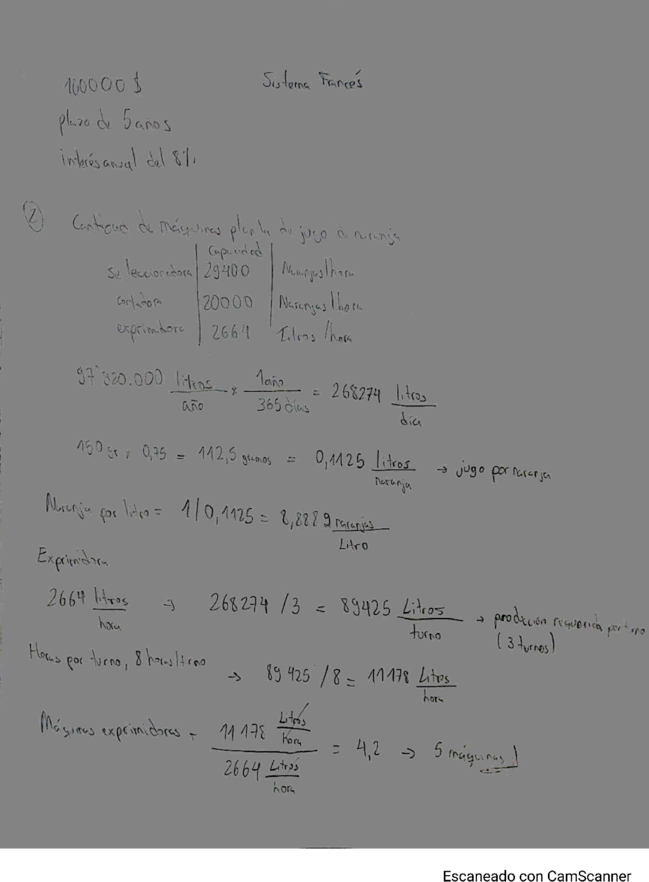 100000 $ Sistema Francés
plazo de 5 años
interés anual del 8%
② Cantidad de máquinas planta de jugo de naranja
Capacidad
Seleccionadora 29400 Naranjas/hora
cortadora 20000 Naranjas/hora
exprimidora 2664 Litros/hora
97'320.000 litros/año * 1 año/365 días = 268274 litros/día
150 gr * 0,75 = 112,5 gramos = 0,1125 litros/naranja → jugo por naranja
Naranja por litro = 1/0,1125 = 8,8889 naranjas/Litro
Exprimidora
2664 litros/hora → 268274 / 3 = 89425 Litros/turno → producción requerida por turno
(3 turnos)
Horas por turno, 8 horas/turno → 89425 / 8 = 11178 Litros/hora
Máquinas exprimidoras = 11178 Litros/hora / 2664 Litros/hora = 4,2 → 5 máquinas
Escaneado con CamScanner